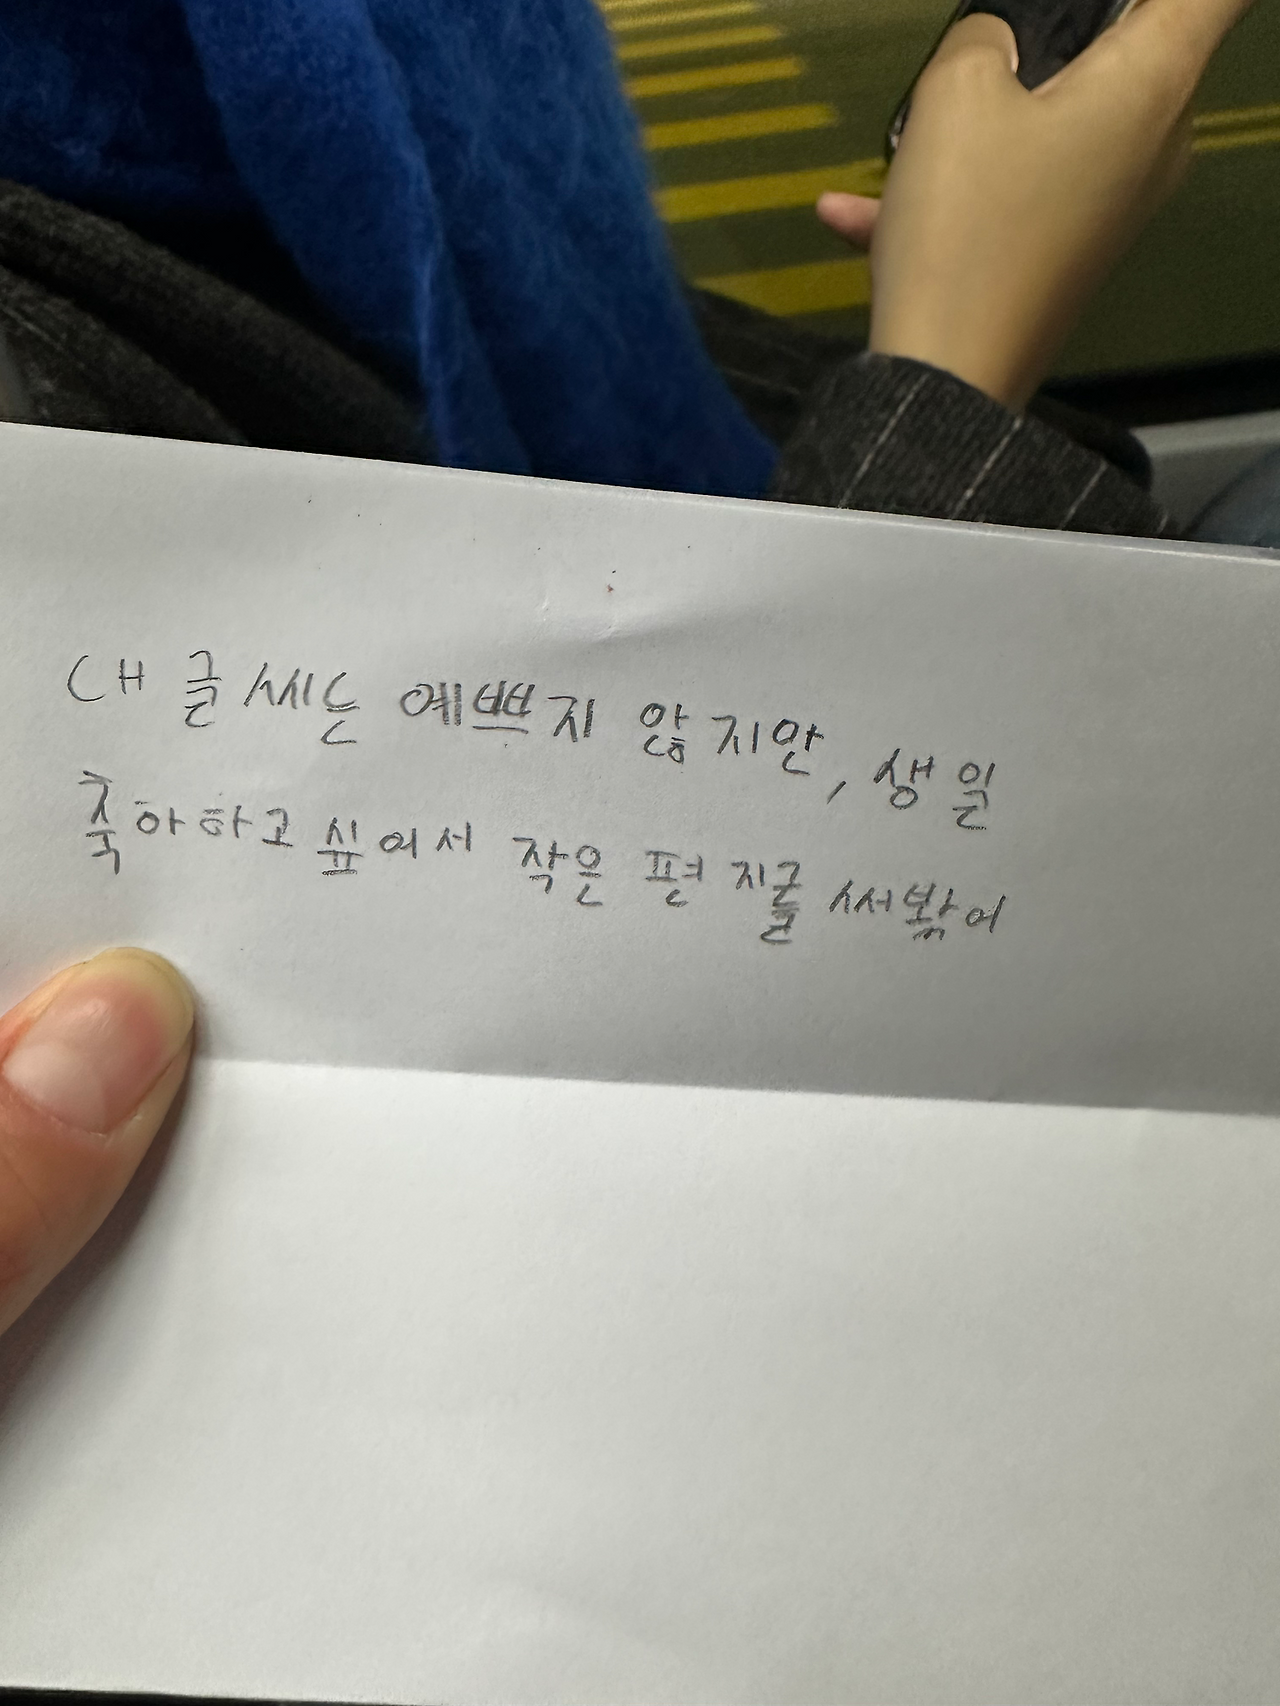 내 글쎄는 예쁘지 않지만, 생일
축하하고 싶어서 작은 편지를 써봤어